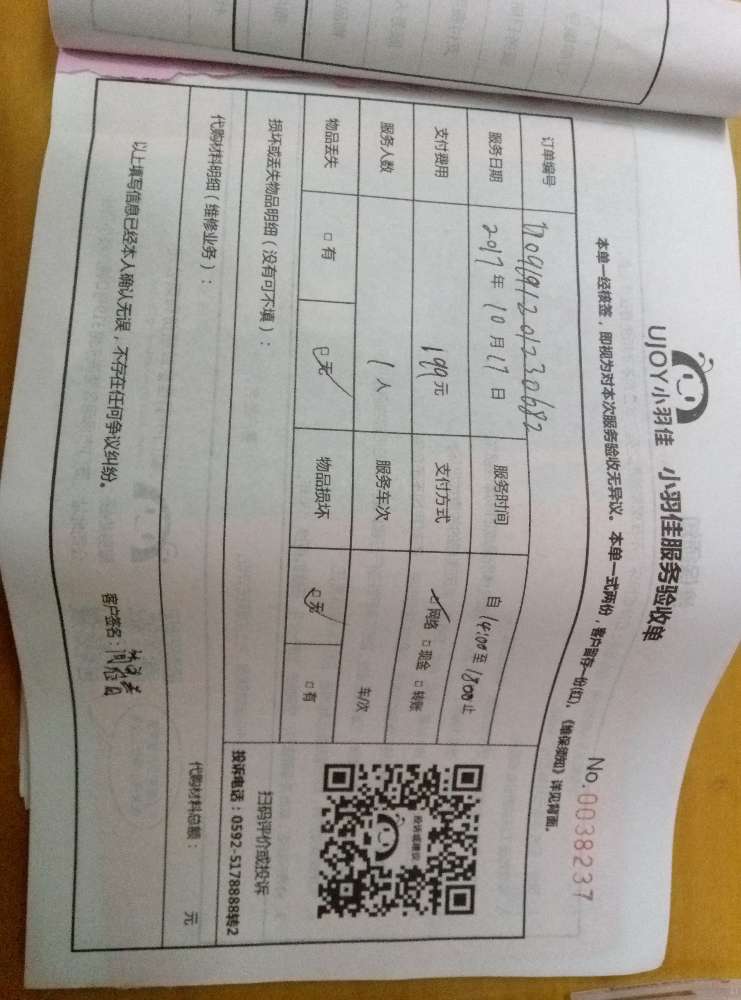 UJOY小羽佳 小羽佳服务验收单
No.0038237
本单一经核签，即视为对本次服务验收无异议。本单一式两份，客户留存一份(红)，《维保须知》详见背面。
订单编号
服务日期 2017年10月17日 服务时间 自14:00至18:00止
支付费用 199元 支付方式 ☑网络 □现金 □转账
服务人数 1人 服务车次 车/次
物品丢失 □有 ☑无 物品损坏 ☑无 □有
损坏或丢失物品明细（没有可不填）：
代购材料明细（维修业务）：
代购材料总额： 元
投诉或建议
扫码评价或投诉
投诉电话：0592-5178888转2
以上填写信息已经本人确认无误，不存在任何争议纠纷。
客户签名：